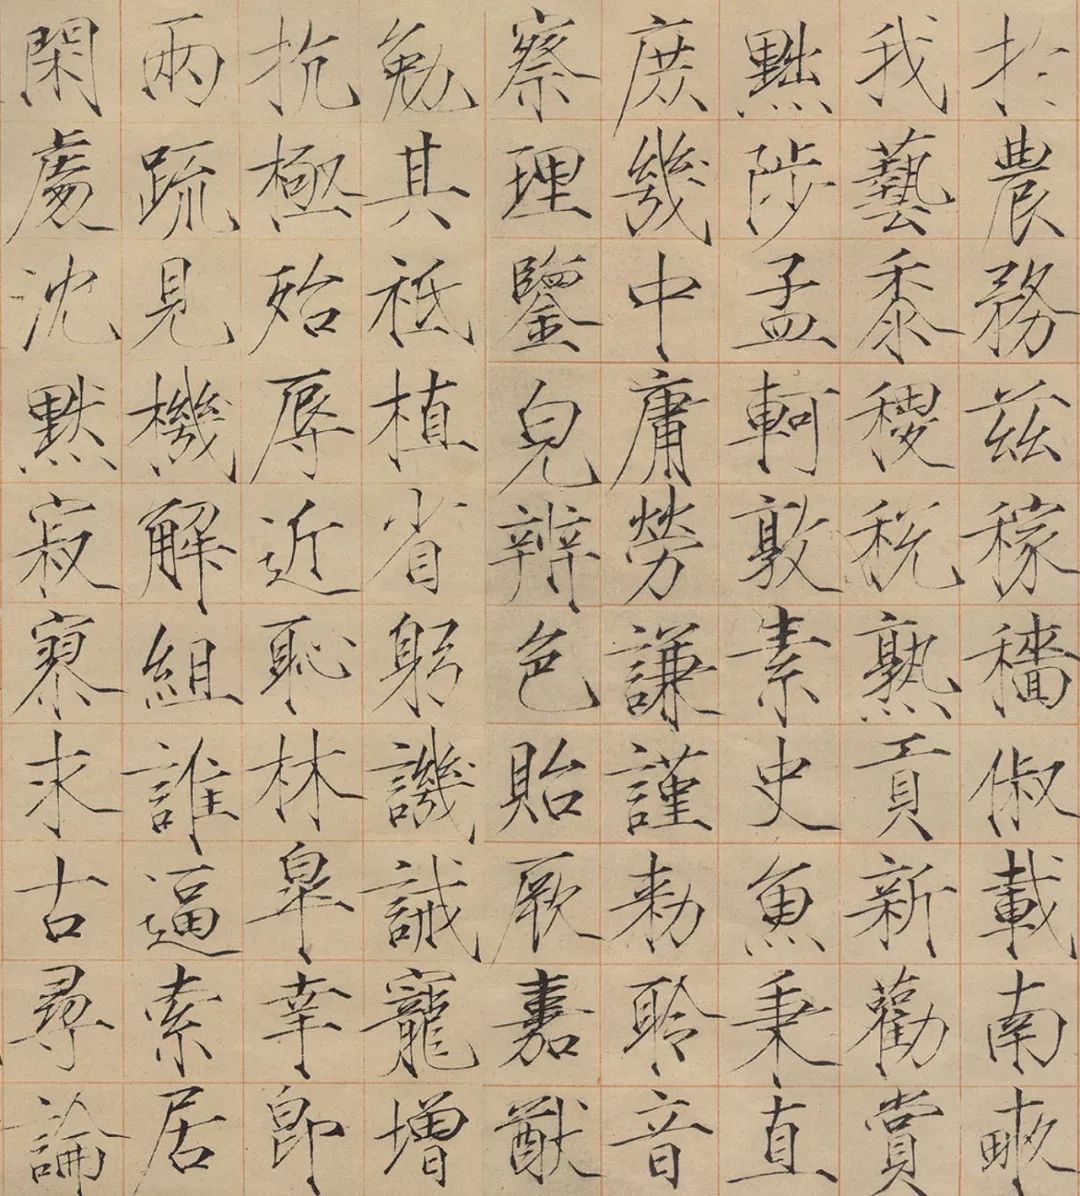 於農務茲稼穡俶載南畝
我藝黍稷稅熟貢新勸賞
黜陟孟軻敦素史魚秉直
庶幾中庸勞謙謹勑聆音
察理鑒皃辨色貽厥嘉猷
勉其祗植省躬譏誡寵增
抗極殆辱近恥林皋幸即
兩疏見機解組誰逼索居
閑處沈默寂寥求古尋論